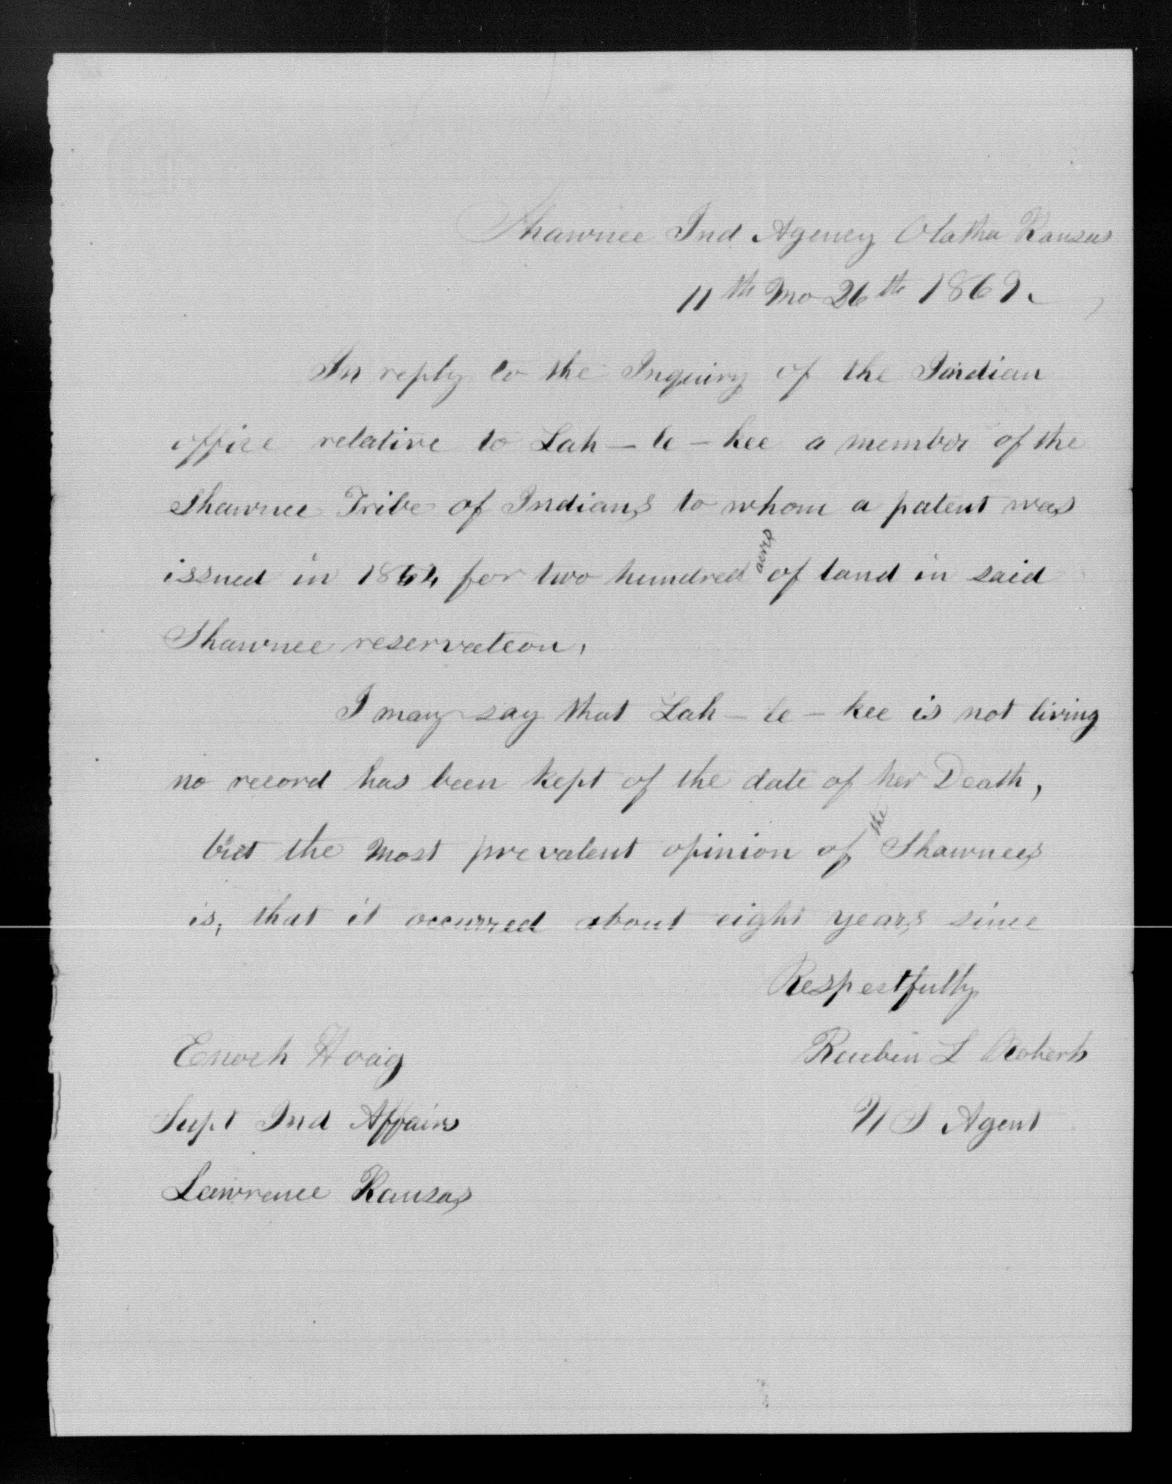 Shawnee Ind Agency Olatha Kansas
11th Mo 26th 1869.
In reply to the Inquiry of the Indian
office relative to Lah - le - kee a member of the
Shawnee Tribe of Indians to whom a patent was
issued in for two hundred acres of land in said
Shawnee reservation,
I may say that Lah - le - kee is not living
no record has been kept of the date of her Death,
but the Most prevalent opinion of the Shawnees
is, that it occurred about eight years since
Respectfully
Reubin L Roberts
U S Agent
Enoch Hoag
Supt Ind Affairs
Lawrence Kansas